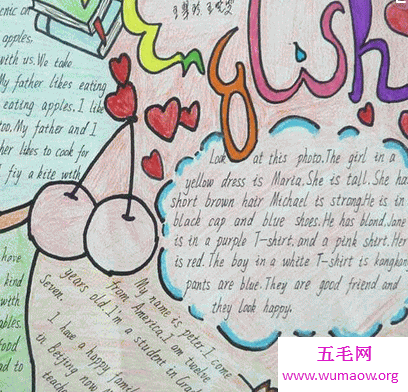 English
enic on
apples,
with us. We take
My father likes eating
eating apples. I like
too. My father and I
her likes to cook for
I fiy a kite with
Look at this photo. The girl in a
yellow dress is Maria. She is tall. She ha
short brown hair Michael is strong. He is in
black cap and blue shoes. He has blond. Jane
is in a purple T-shirt. and a pink shirt. Her
is red. The boy in a white T-shirt is kangkan
pants are blue. They are good friend and
they look happy.
have
kind
with
ables.
food
ad to
My name is peter. I come
from America, I am twelve
years old. I'm a student in Grad
Seven.
I have a happy family
in Beijing now
teache
五毛网
www.wumaow.org